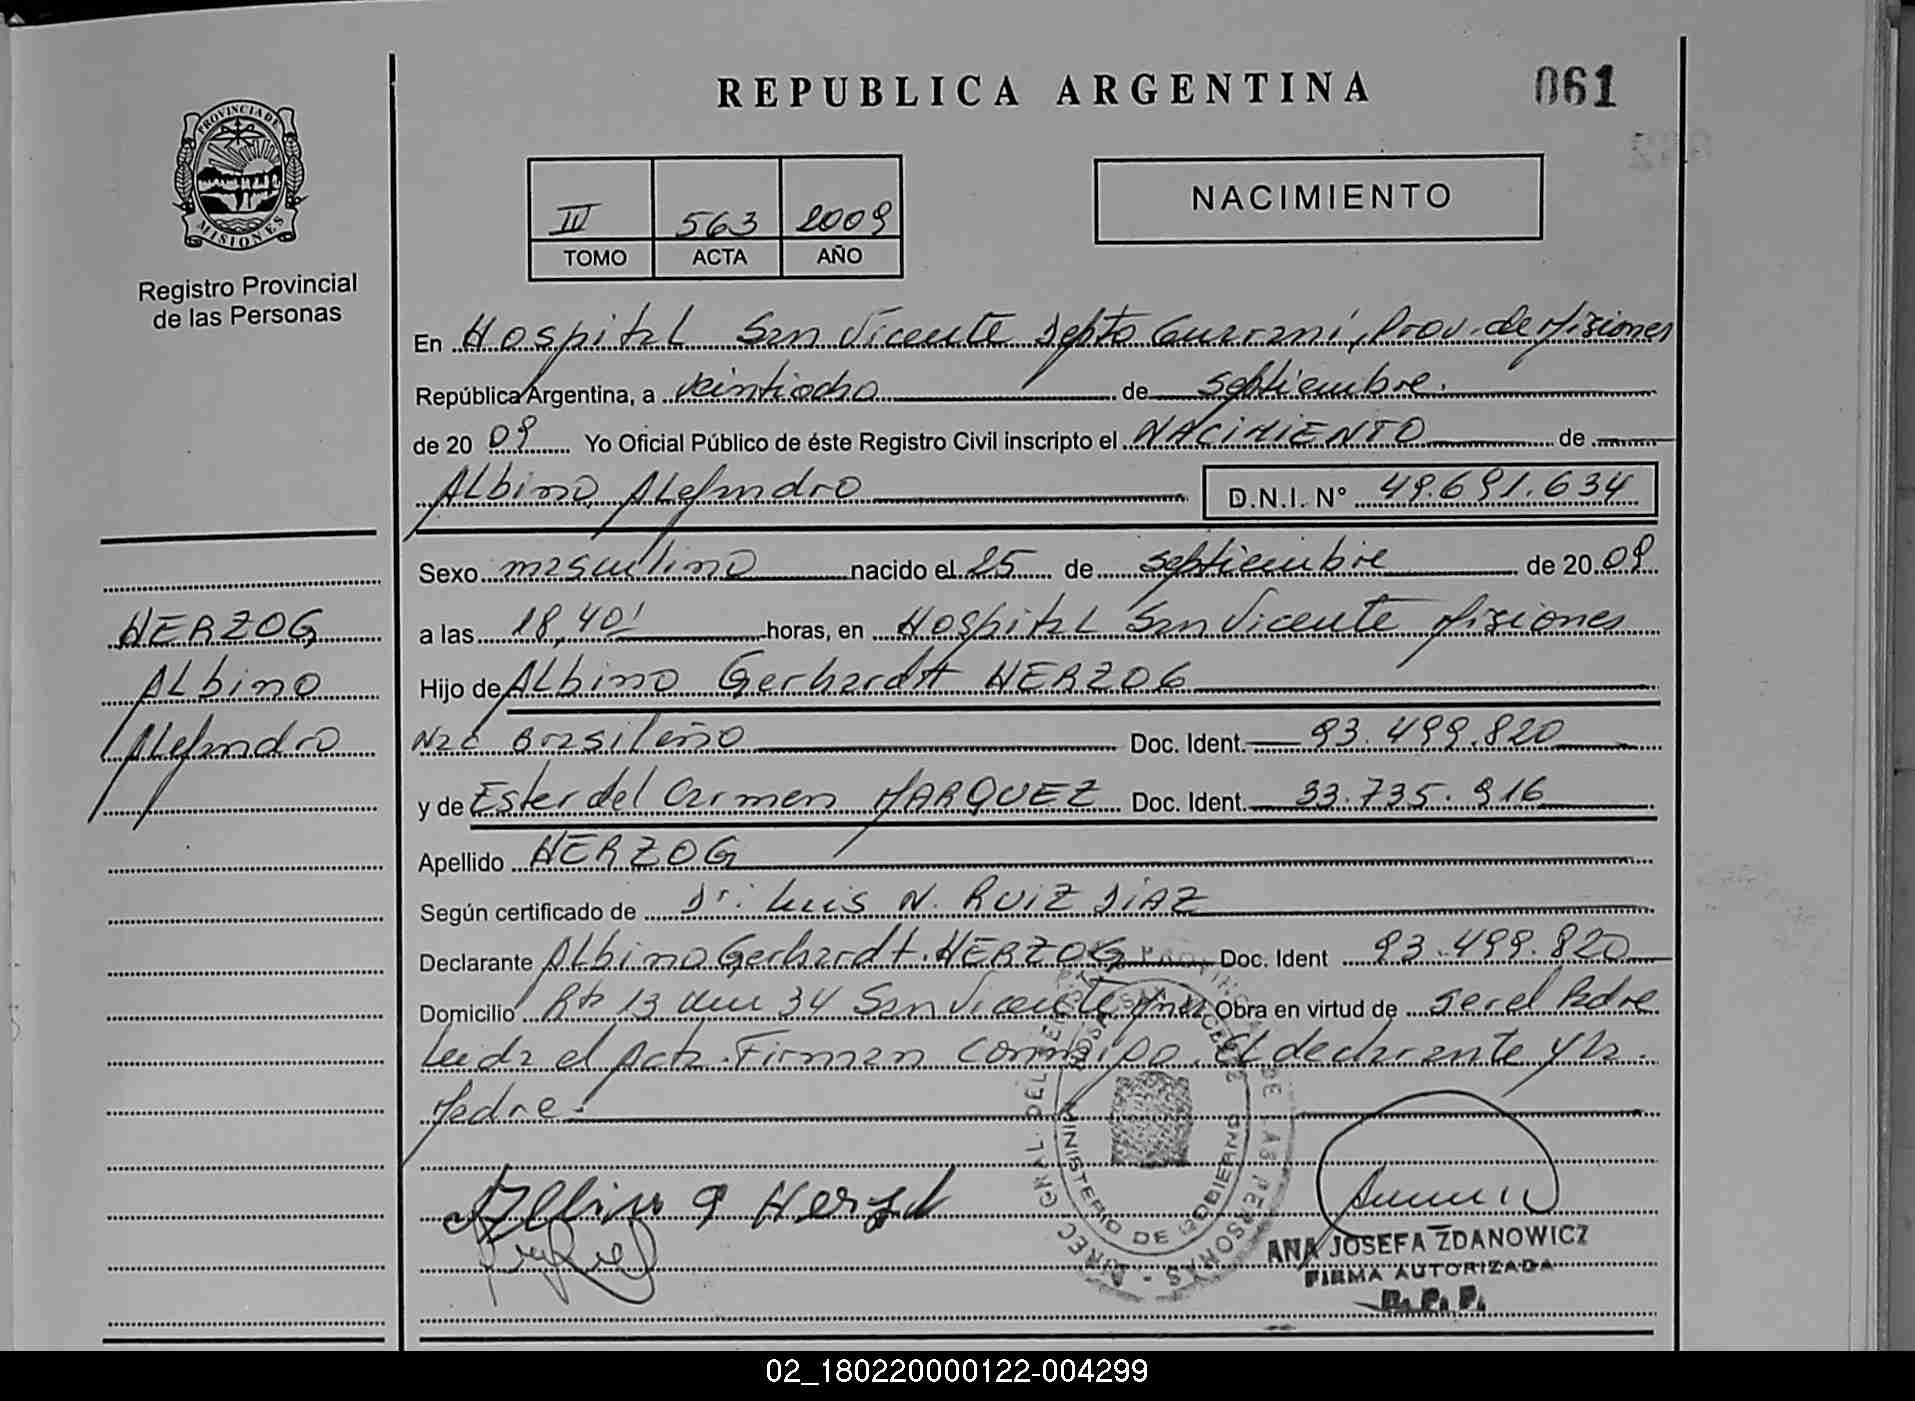 REPUBLICA ARGENTINA
061
PROVINCIA DE
MISIONES
Registro Provincial
de las Personas
III 563 2009
TOMO ACTA AÑO
NACIMIENTO
En Hospital San Vicente Depto Guaraní, Prov. de Misiones
República Argentina, a veintiocho de septiembre.
de 20 09 Yo Oficial Público de éste Registro Civil inscripto el NACIMIENTO de
Albino, Alejandro D.N.I. N° 49.691.634
Sexo masculino nacido el 25 de septiembre de 20 09
HERZOG,
a las 18,40' horas, en Hospital San Vicente Misiones
Albino
Hijo de Albino Gerhardt HERZOG
Alejandro
Nac Brasileño Doc. Ident. 93.499.820
y de Ester del Carmen MARQUEZ Doc. Ident. 33.735.916
Apellido HERZOG
Según certificado de Dr. Luis N. RUIZ DIAZ
Declarante Albino Gerhardt HERZOG Doc. Ident 93.499.820
Domicilio Rta 13 Km 34 San Vicente Mnes Obra en virtud de ser el Padre
Leida el Acta. Firman Conmigo. El declarante y la.
Madre.-
Albin G Herzog
MINISTERIO DE GOBIERNO
DIREC. GRAL. DEL DE LAS PERSONAS
ANA JOSEFA ZDANOWICZ
FIRMA AUTORIZADA
R. P. P.
02_180220000122-004299